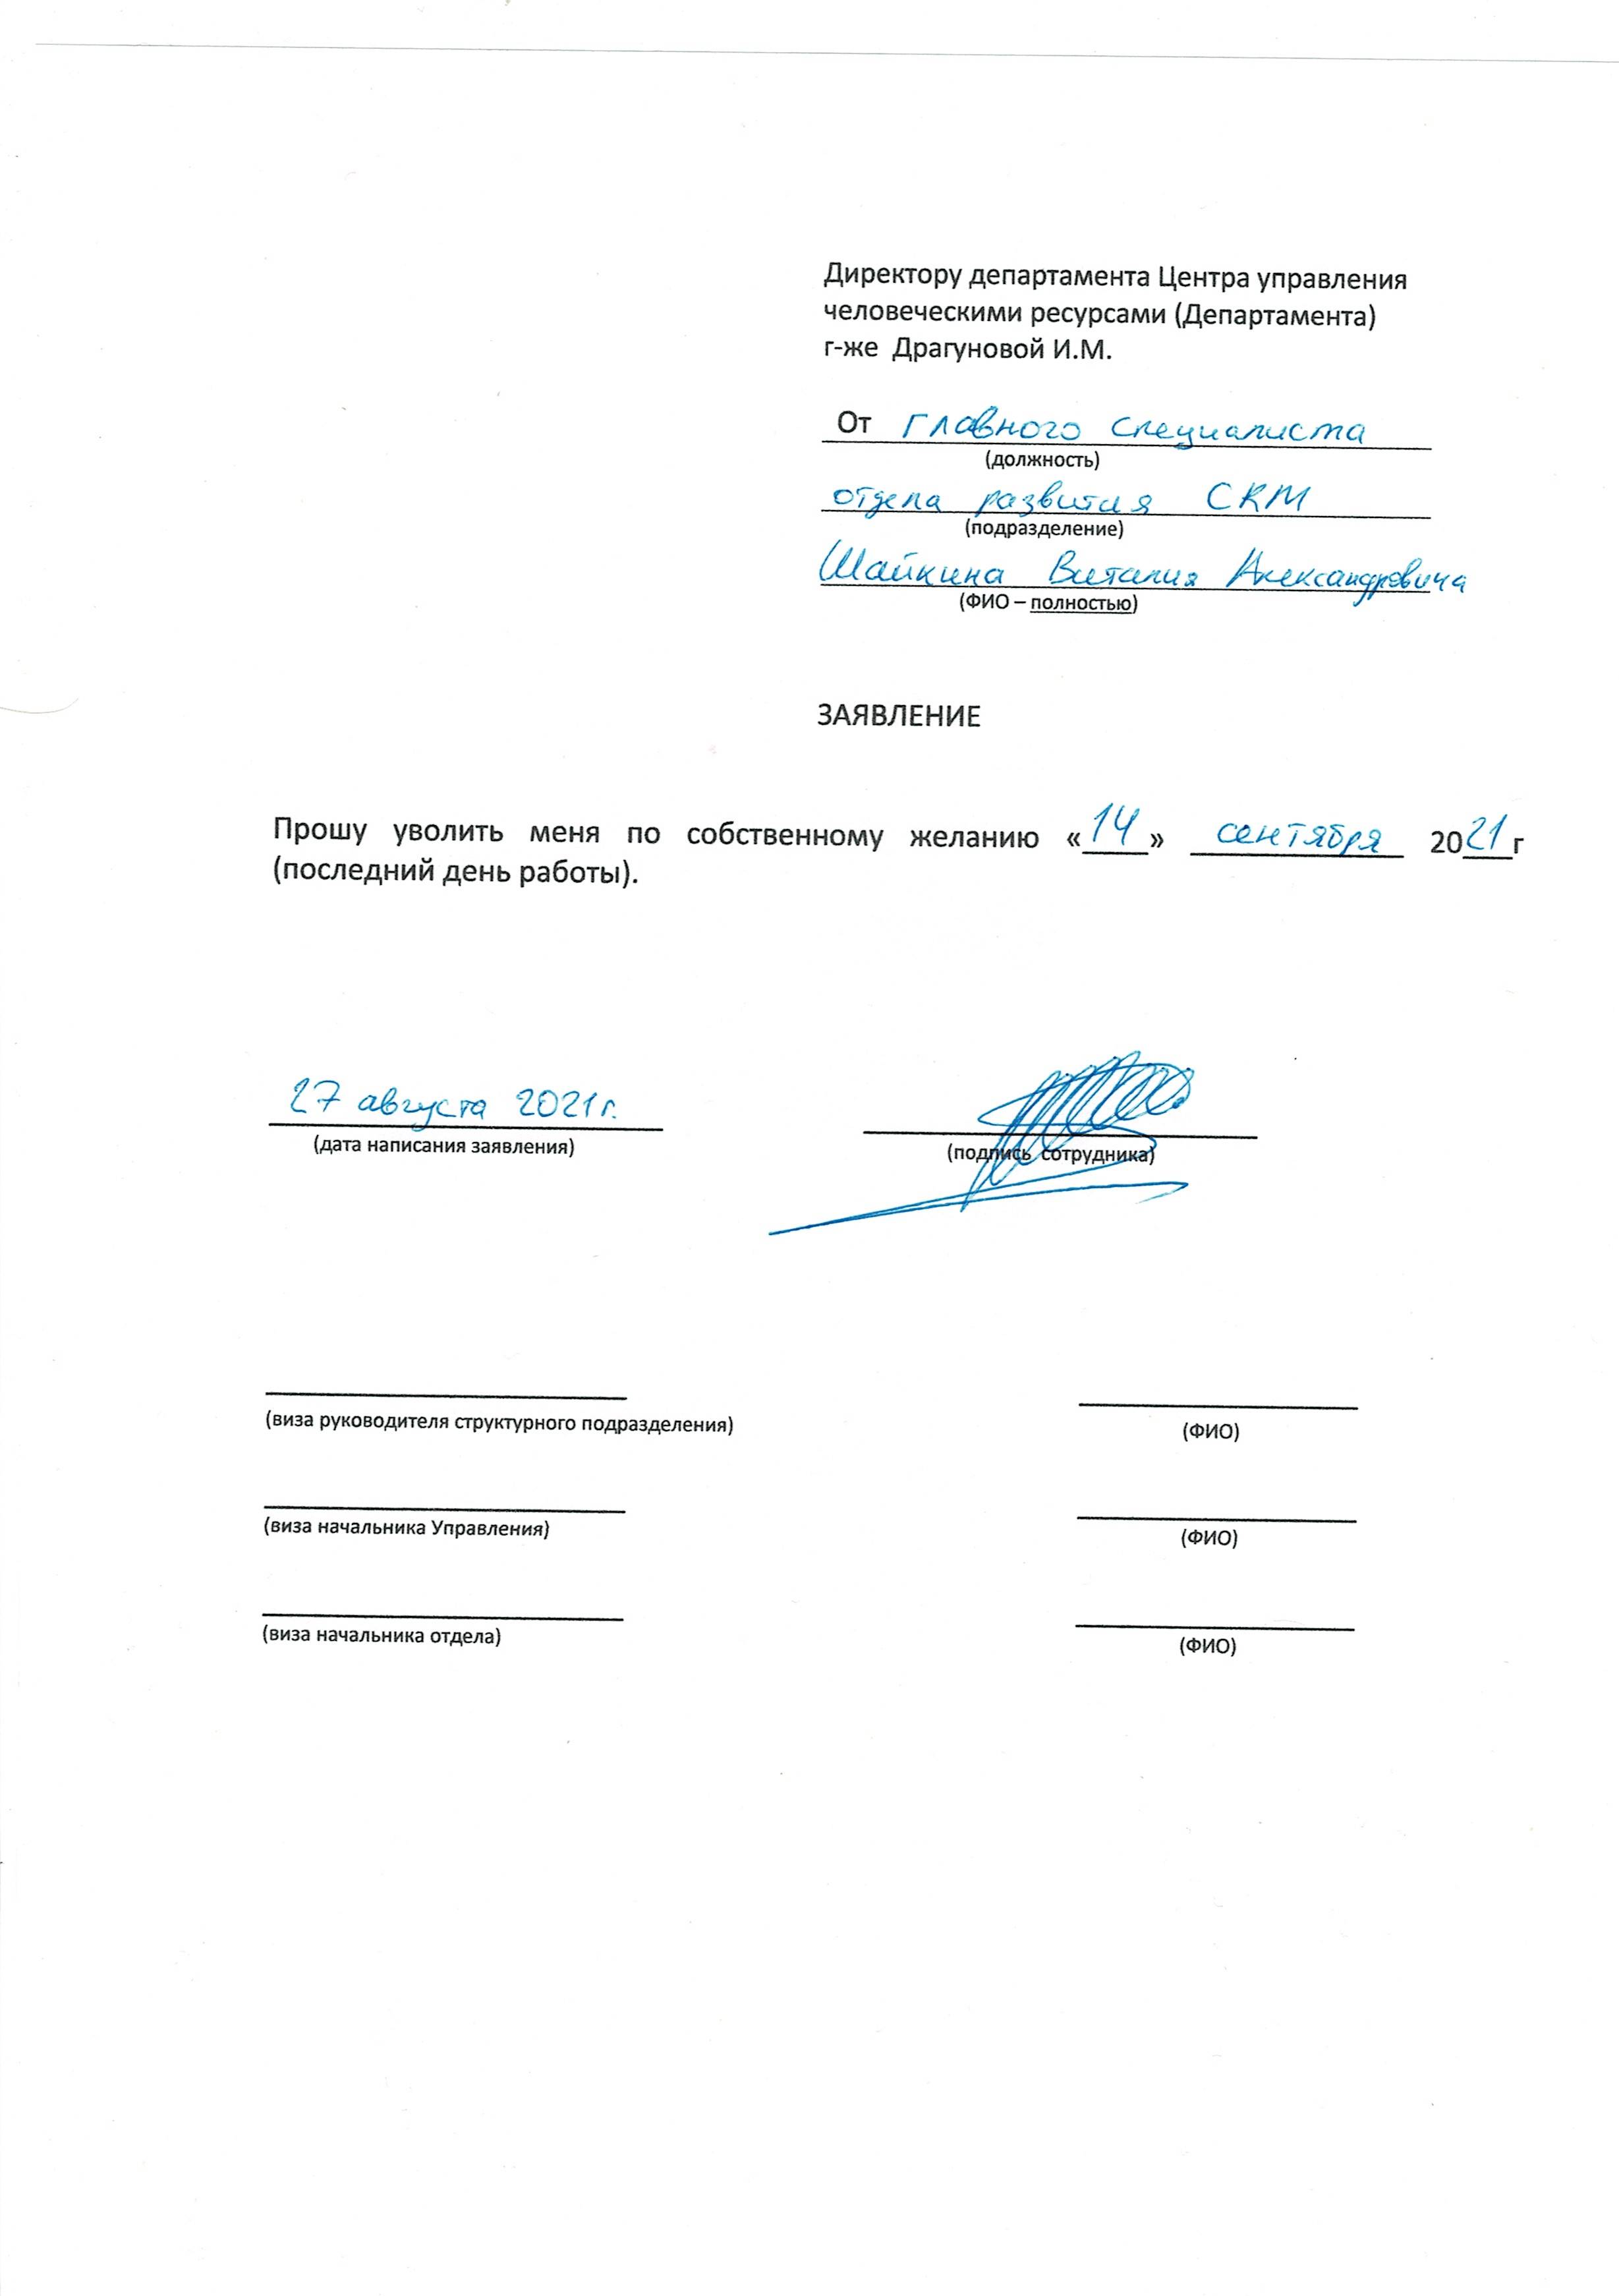 Директору департамента Центра управления
человеческими ресурсами (Департамента)
г-же Драгуновой И.М.
От главного специалиста
(должность)
отдела развития CRM
(подразделение)
Шайкина Виталия Александровича
(ФИО – полностью)
ЗАЯВЛЕНИЕ
Прошу уволить меня по собственному желанию «14» сентября 2021г
(последний день работы).
27 августа 2021г.
(дата написания заявления) (подпись сотрудника)
(виза руководителя структурного подразделения) (ФИО)
(виза начальника Управления) (ФИО)
(виза начальника отдела) (ФИО)